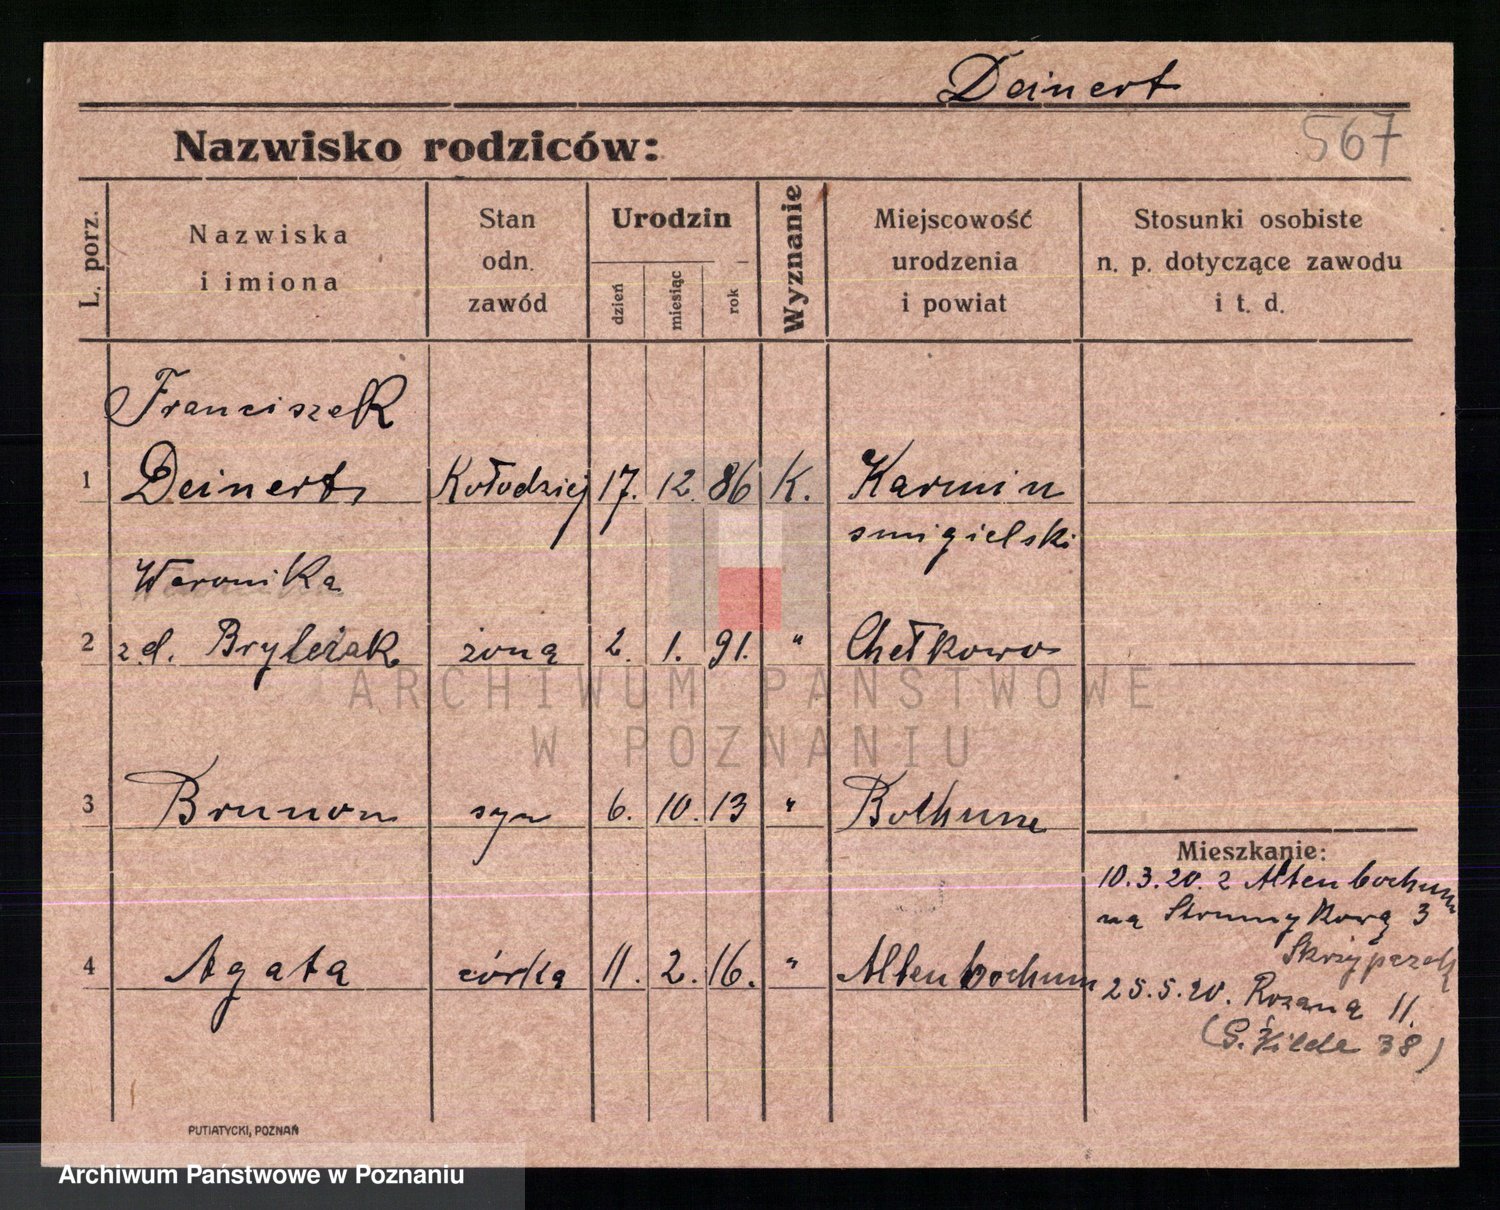 Deinert
Nazwisko rodziców:
567
L. porz.
Nazwiska
i imiona
Stan
odn.
zawód
Urodzin
dzień
miesiąc
rok
Wyznanie
Miejscowość
urodzenia
i powiat
Stosunki osobiste
n. p. dotyczące zawodu
i t. d.
Franciszek
1 Deinert Kołodziej 17. 12. 86 K. Karmin
smigielski
Weronika
2 z d. żona 2. 1. 91. " Chełkowo
ARCHIWUM PAŃSTWOWE
W POZNANIU
3 Brunon syn 6. 10. 13 " Bochum
Mieszkanie:
10.3.20. z Altenbochum
na Strumykową 3
Skrzypczak
4 Agata córka 11. 2. 16. " Altenbochum
25.5.20. Rózana 11.
38)
PUTIATYCKI, POZNAŃ
Archiwum Państwowe w Poznaniu